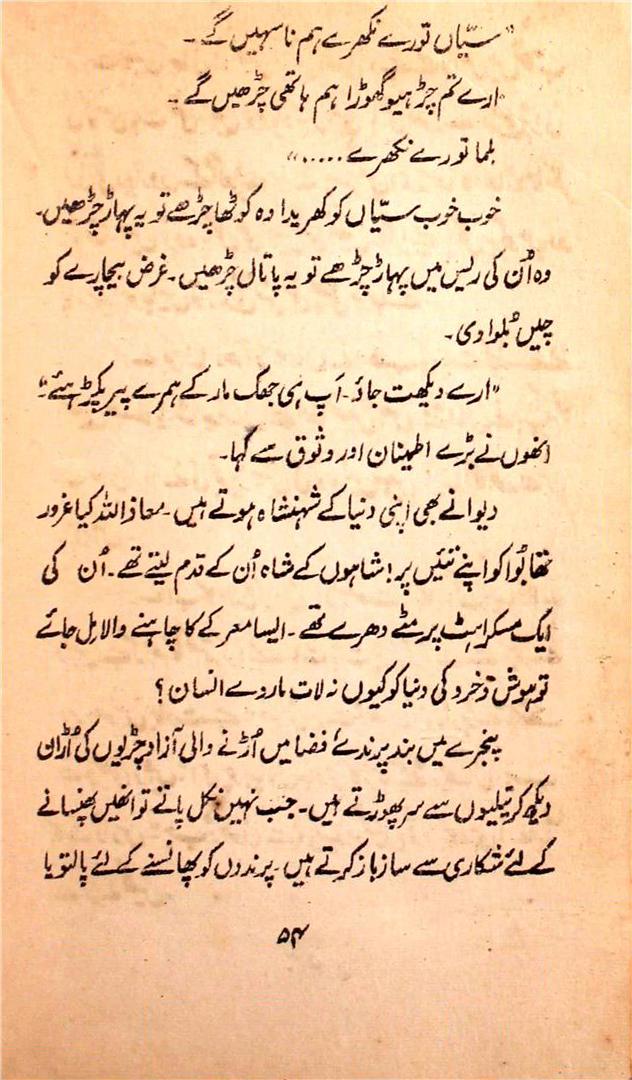 "سیّاں تورے نکھرے ہم نا سہیں گے۔
ارے تم چڑھیو گھوڑا ہم ہاتھی چڑھیں گے۔
بلما تورے نکھرے ....."
خوب خوب سیّاں کو کھریدا وہ کوٹھا چڑھے تو یہ پہاڑ چڑھیں۔
وہ اُن کی ریس میں پہاڑ چڑھے تو یہ پاتال چڑھیں۔ غرض بیچارے کو
چیں بُلوا دی۔
"ارے دیکھت جاؤ۔ اَپ ہی جھک مار کے ہمرے پیر پکڑ ہئے۔"
انھوں نے بڑے اطینان اور وثوق سے کہا۔
دیوانے بھی اپنی دنیا کے شہنشاہ ہوتے ہیں۔ معاذ اللہ کیا غرور
تھا بُوا کو اپنے تئیں پر! شاہوں کے شاہ اُن کے قدم لیتے تھے۔ اُن کی
ایک مسکراہٹ پر مٹے دھرے تھے۔ ایسا معرکے کا چاہنے والا مل جائے
تو ہوش و خرد کی دنیا کو کیوں نہ لات مار دے انسان؟
پنجرے میں بند پرندے فضا میں اُڑنے والی آزاد چڑیوں کی اُڑان
دیکھ کر تیلیوں سے سر پھوڑتے ہیں۔ جب نہیں نکل پاتے تو انھیں پھنسانے
کے لئے شکاری سے ساز باز کرتے ہیں۔ پرندوں کو پھانسنے کے لئے پالتو یا
۵۴